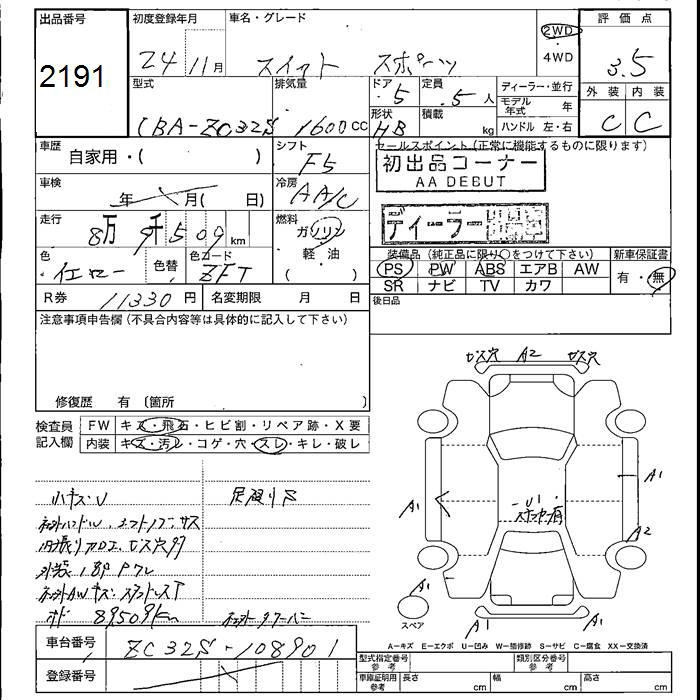 出品番号 初度登録年月 車名・グレード 評価点
2191
24年11月 スイフト スポーツ 2WD・4WD 3.5
型式 排気量 ドア 定員 ディーラー・並行 外装 内装
CBA-ZC32S 1600cc 5 5人 モデル年式 年 C C
形状 HB 積載 kg ハンドル 左・右
車歴 自家用・( ) シフト F5 セールスポイント(正常に機能するものに限ります)
初出品コーナー
AA DEBUT
車検 年 月( 日) 冷房 AA/C
走行 8万9千509km 燃料 ガソリン
ディーラー
色 イエロー 色替 色コード ZFT 軽・油 ( )
装備品(純正品に限り○をつけて下さい) 新車保証書
PS PW ABS エアB AW 有・無
SR ナビ TV カワ
R券 11330円 名変期限 月 日 後日品
注意事項申告欄(不具合内容等は具体的に記入して下さい)
修復歴 有 〔箇所 〕
検査員記入欄 FW キズ・飛石・ヒビ割・リペア跡・X要
内装 キズ・汚レ・コゲ・穴・スレ・キレ・破レ
ビス穴 A2 ビス穴
A1
A1
U1
A2
A1
A1
A1
スペア
89509km
A=キズ E=エクボ U=凹み W=補修跡 S=サビ C=腐食 XX=交換済
車台番号 ZC32S-108901
型式指定番号参考 類別区分番号参考
登録番号
車庫証明用参考 長さ cm 幅 cm 高さ cm